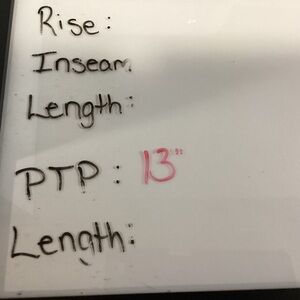 Rise:
Inseam
Length:
PTP: 13"
Length: